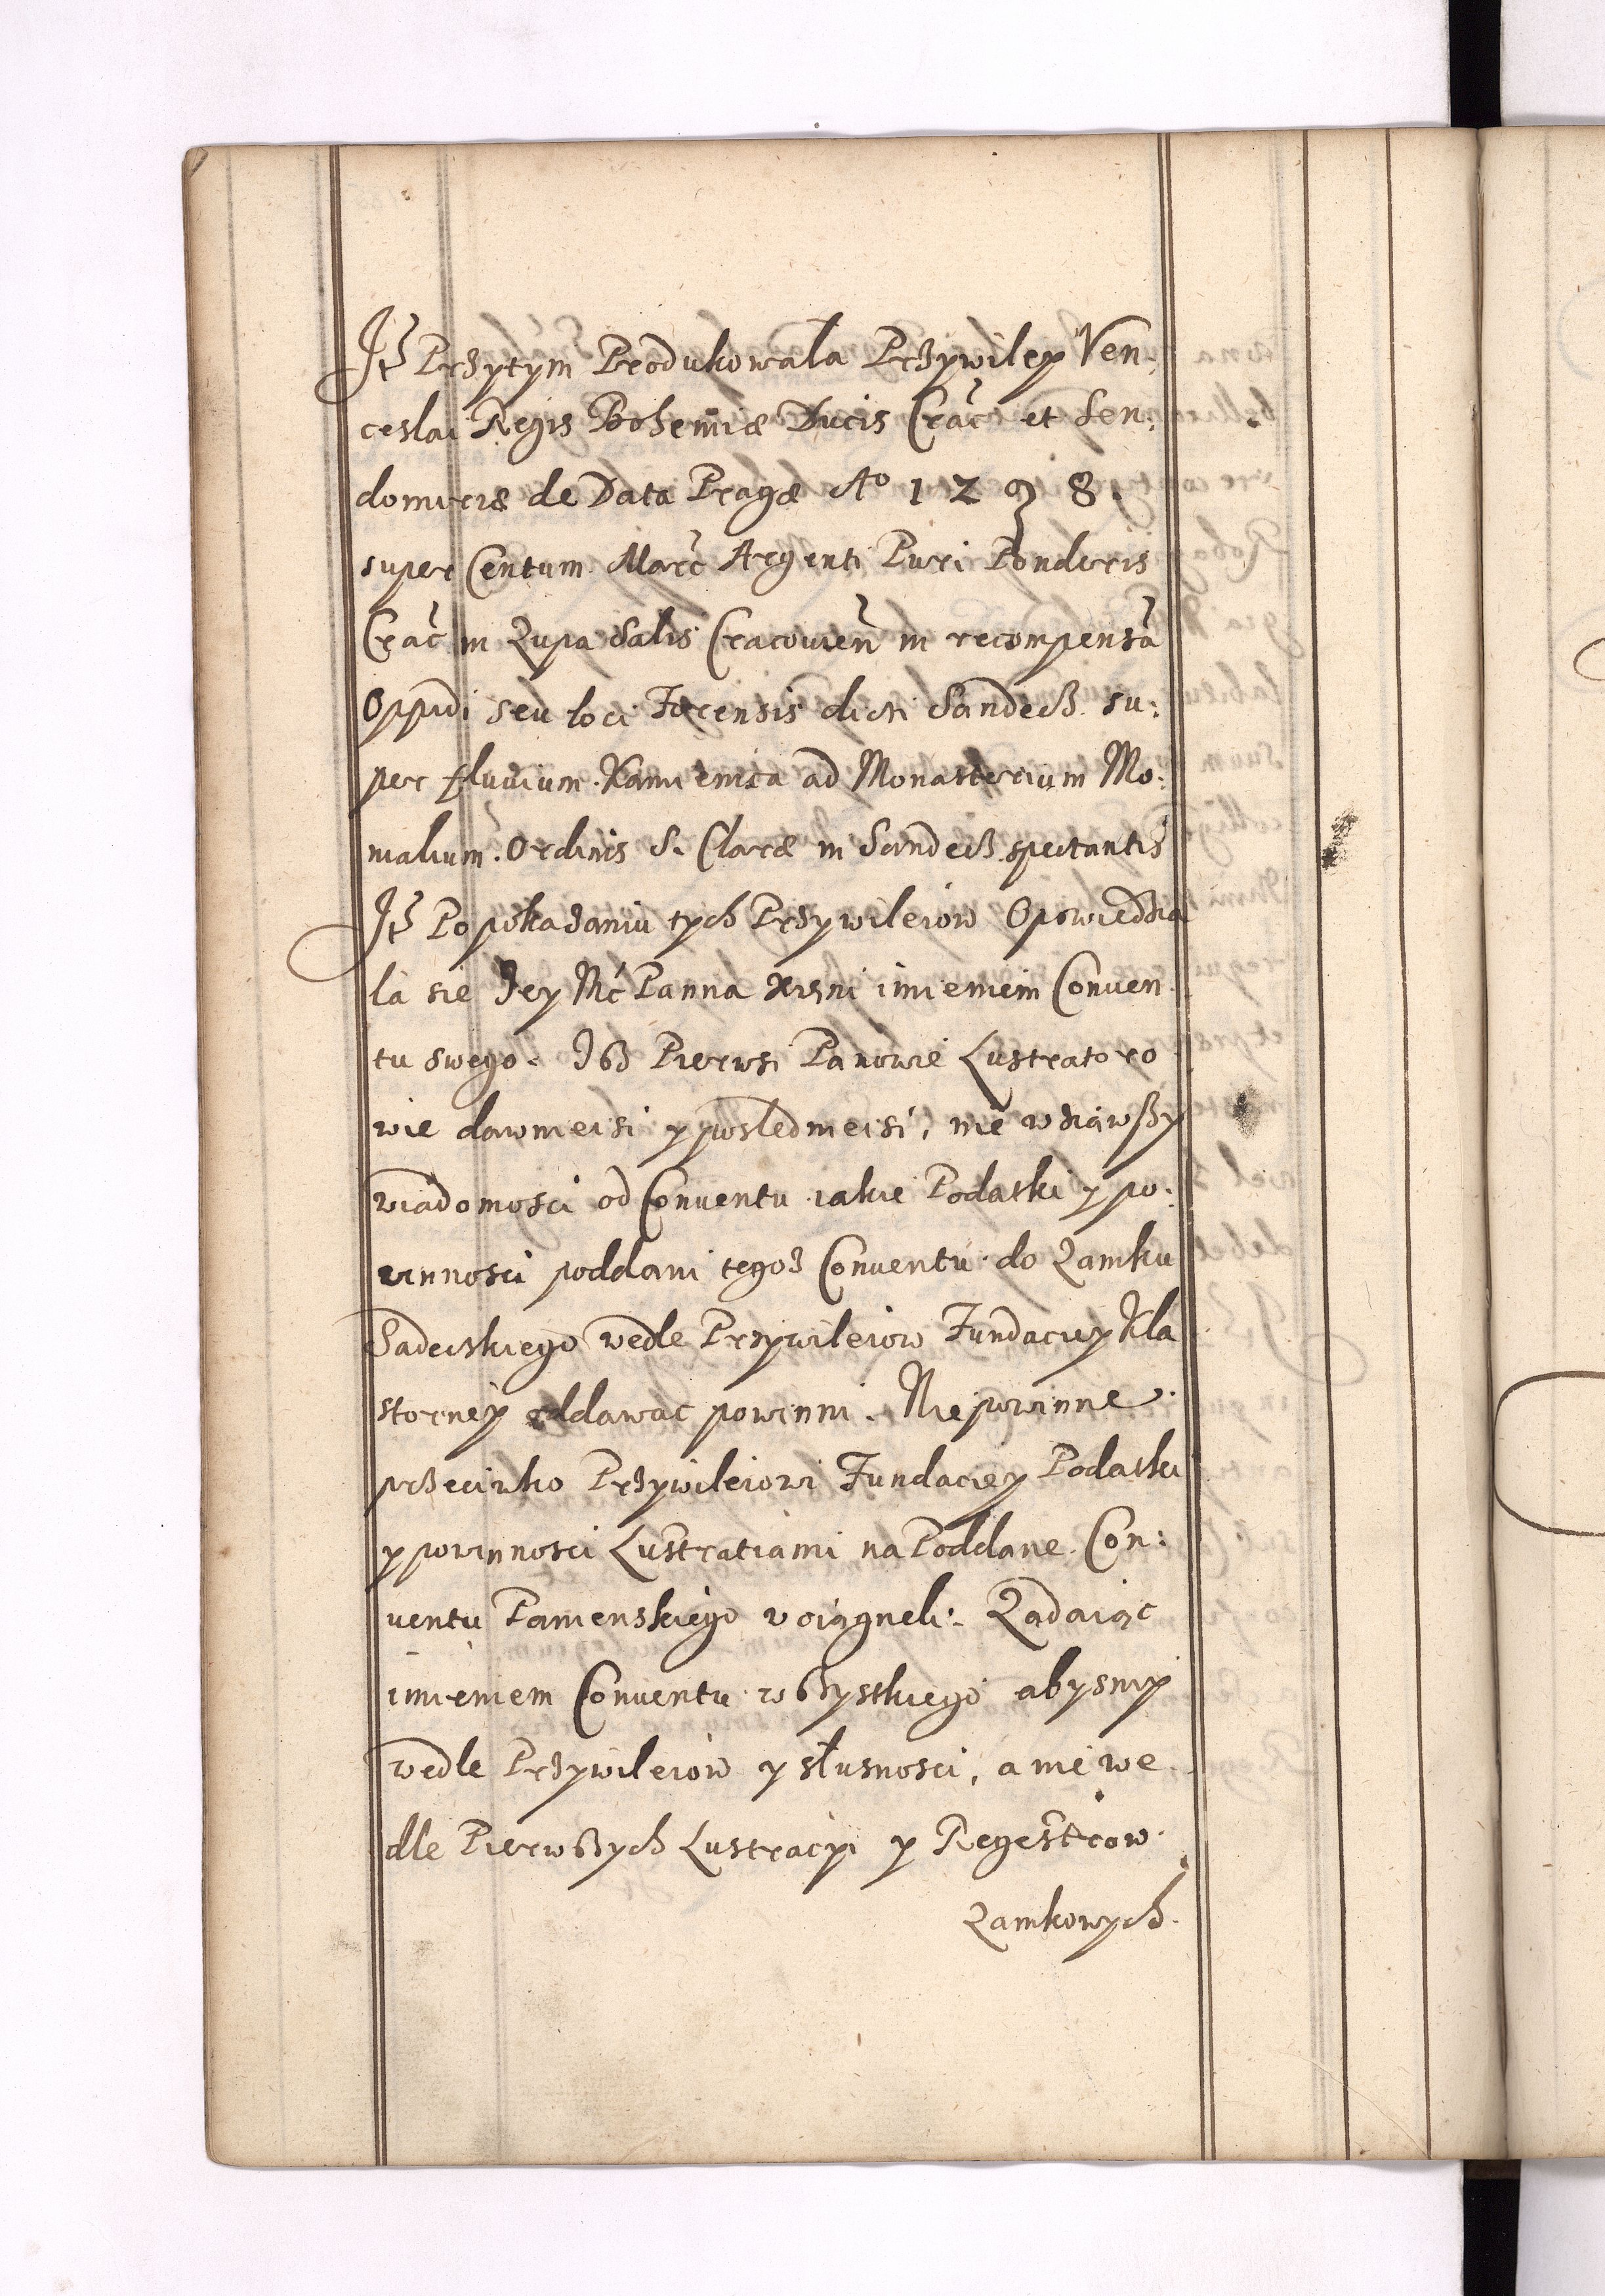 Jt Przytym Produkowala Przywiley Ven-
ceslai Regis Bohemiæ Ducis Crac et Sen:
domiriæ de Data Pragæ Ao 1298.
super Centum Marc Argenti Puri Ponderis
Crac in Zupa Salis Cracovien in recompensa
Oppidi seu loci Forensis dicti Sandecz su:
per fluvium Kamienica ad Monasterium Mo:
nialium Ordinis S. Claræ in Sandecz spectantis
Jt Po pokazaniu tych Przywileiow Opowiedzia
la sie Jey Mc Panna Xieni imieniem Conven
tu swego. Isz Pierwsi Panowie Lustratoro
wie dawnieisi y poslednieisi, nie wziąwszy
wiadomosci od Conventu iakie Podatki y po:
winnosci poddani tegoz Conventu do Zamku
Sadeckiego wedle Przywileiow Fundaciey Kla
storney oddawac powinni. Niepowinne
przeciwko Przywileiowi Fundaciey Podatki
y powinnosci Lustratiami na Poddane Con:
ventu Panienskiego wciągneli: Ządaiąc
imieniem Conventu wszystkiego abysmy
wedle Przywileiow y słusnosci, a nie we
dle Pierwszych Lustracyi y Regestrow
Zamkowych.